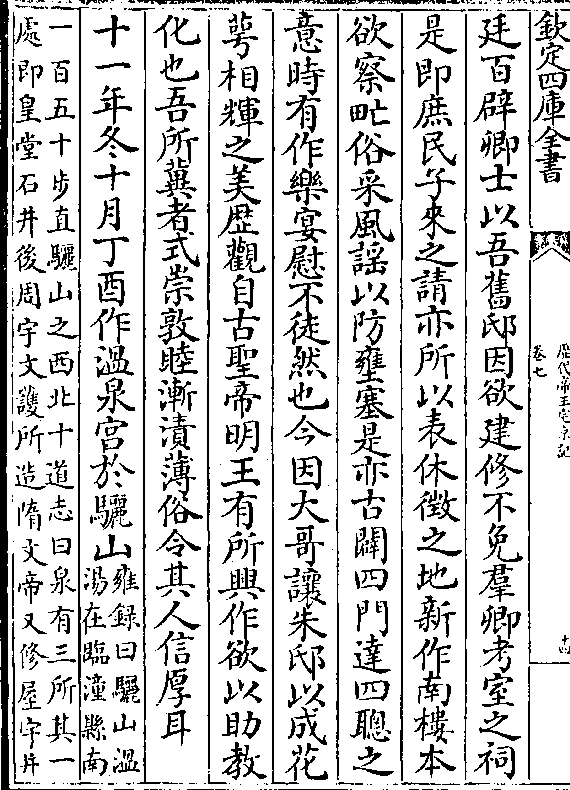 欽定四庫全書
歷代帝王宅京記
卷七
十四
廷百辟卿士以吾舊邸因欲建修不免羣卿考室之祠
是即庶民子來之請亦所以表休徵之地新作南樓本
欲察甿俗采風謡以防壅塞是亦古闢四門達四聰之
意時有作樂宴慰不徒然也今因大哥讓朱邸以成花
萼相輝之美歴觀自古聖帝明王有所興作欲以助教
化也吾所冀者式崇敦睦漸漬薄俗令其人信厚耳
十一年冬十月丁酉作温泉宫於驪山雍録曰驪山温
湯在臨潼縣南
一百五十步直驪山之西北十道志曰泉有三所其一
處即皇堂石井後周宇文護所造隋文帝又修屋宇井